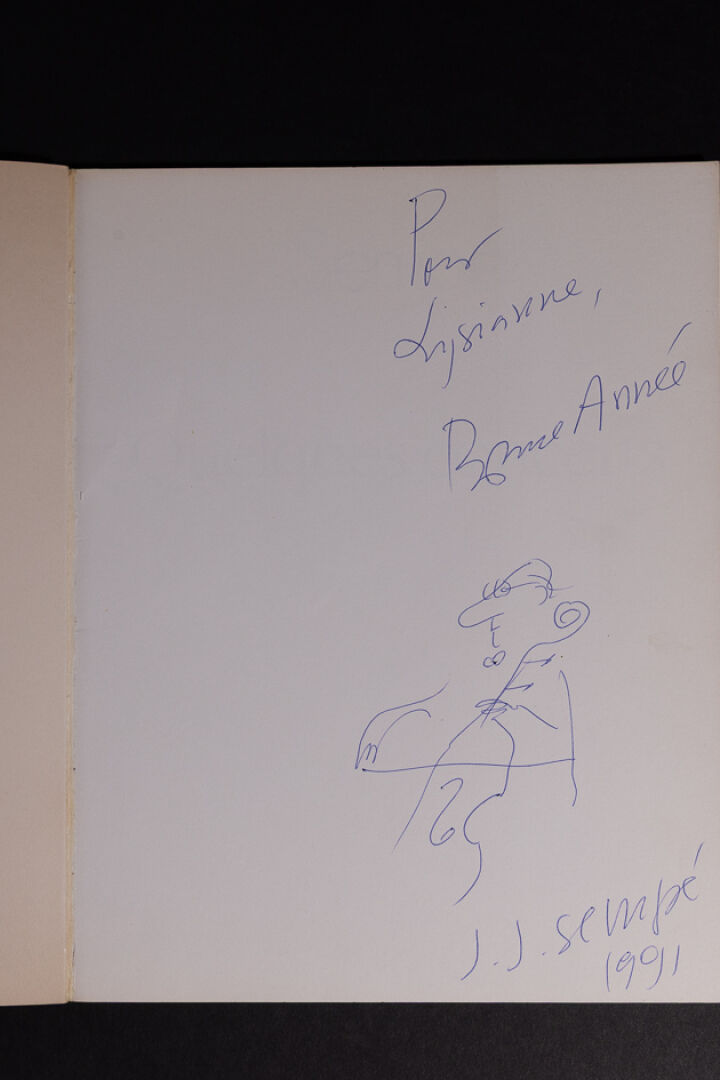 Pour
Lysianne,
Bonne Année
J.J. Sempé
1991